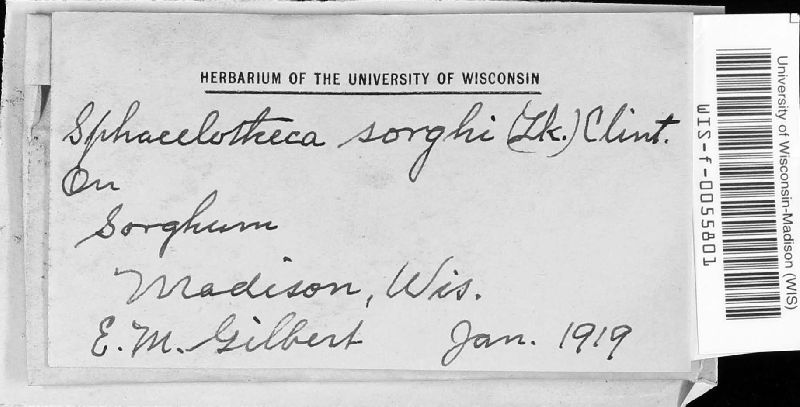 HERBARIUM OF THE UNIVERSITY OF WISCONSIN
Sphacelotheca sorghi (Lk.) Clint.
On
Sorghum
Madison, Wis.
E. M. Gilbert Jan. 1919
University of Wisconsin-Madison (WIS)
WIS-f-0055801